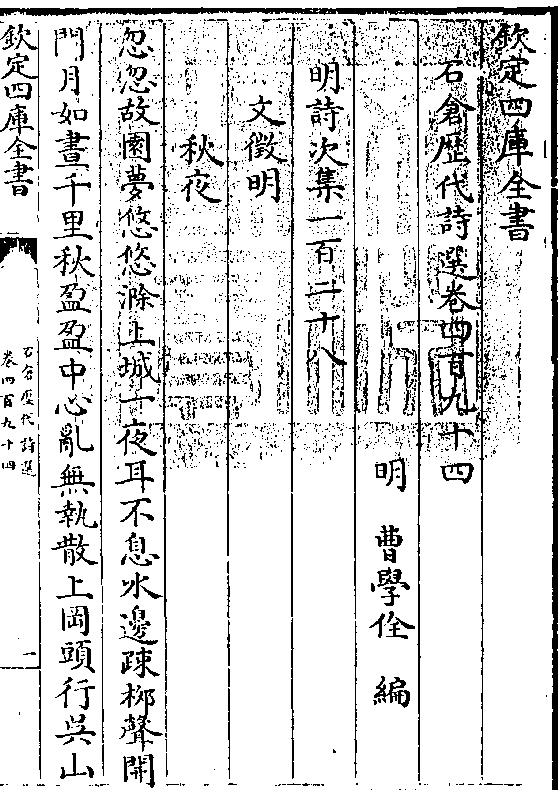 欽定四庫全書
石倉歴代詩選卷四百九十四
明 曹學佺 編
明詩次集一百二十八
文徵明
秋夜
忽忽故園夢悠悠滁上城一夜耳不息水邊疎柳聲開
門月如晝千里秋盈盈中心亂無執散上岡頭行吳山
欽定四庫全書
石倉歷代詩選
卷四百九十四
一